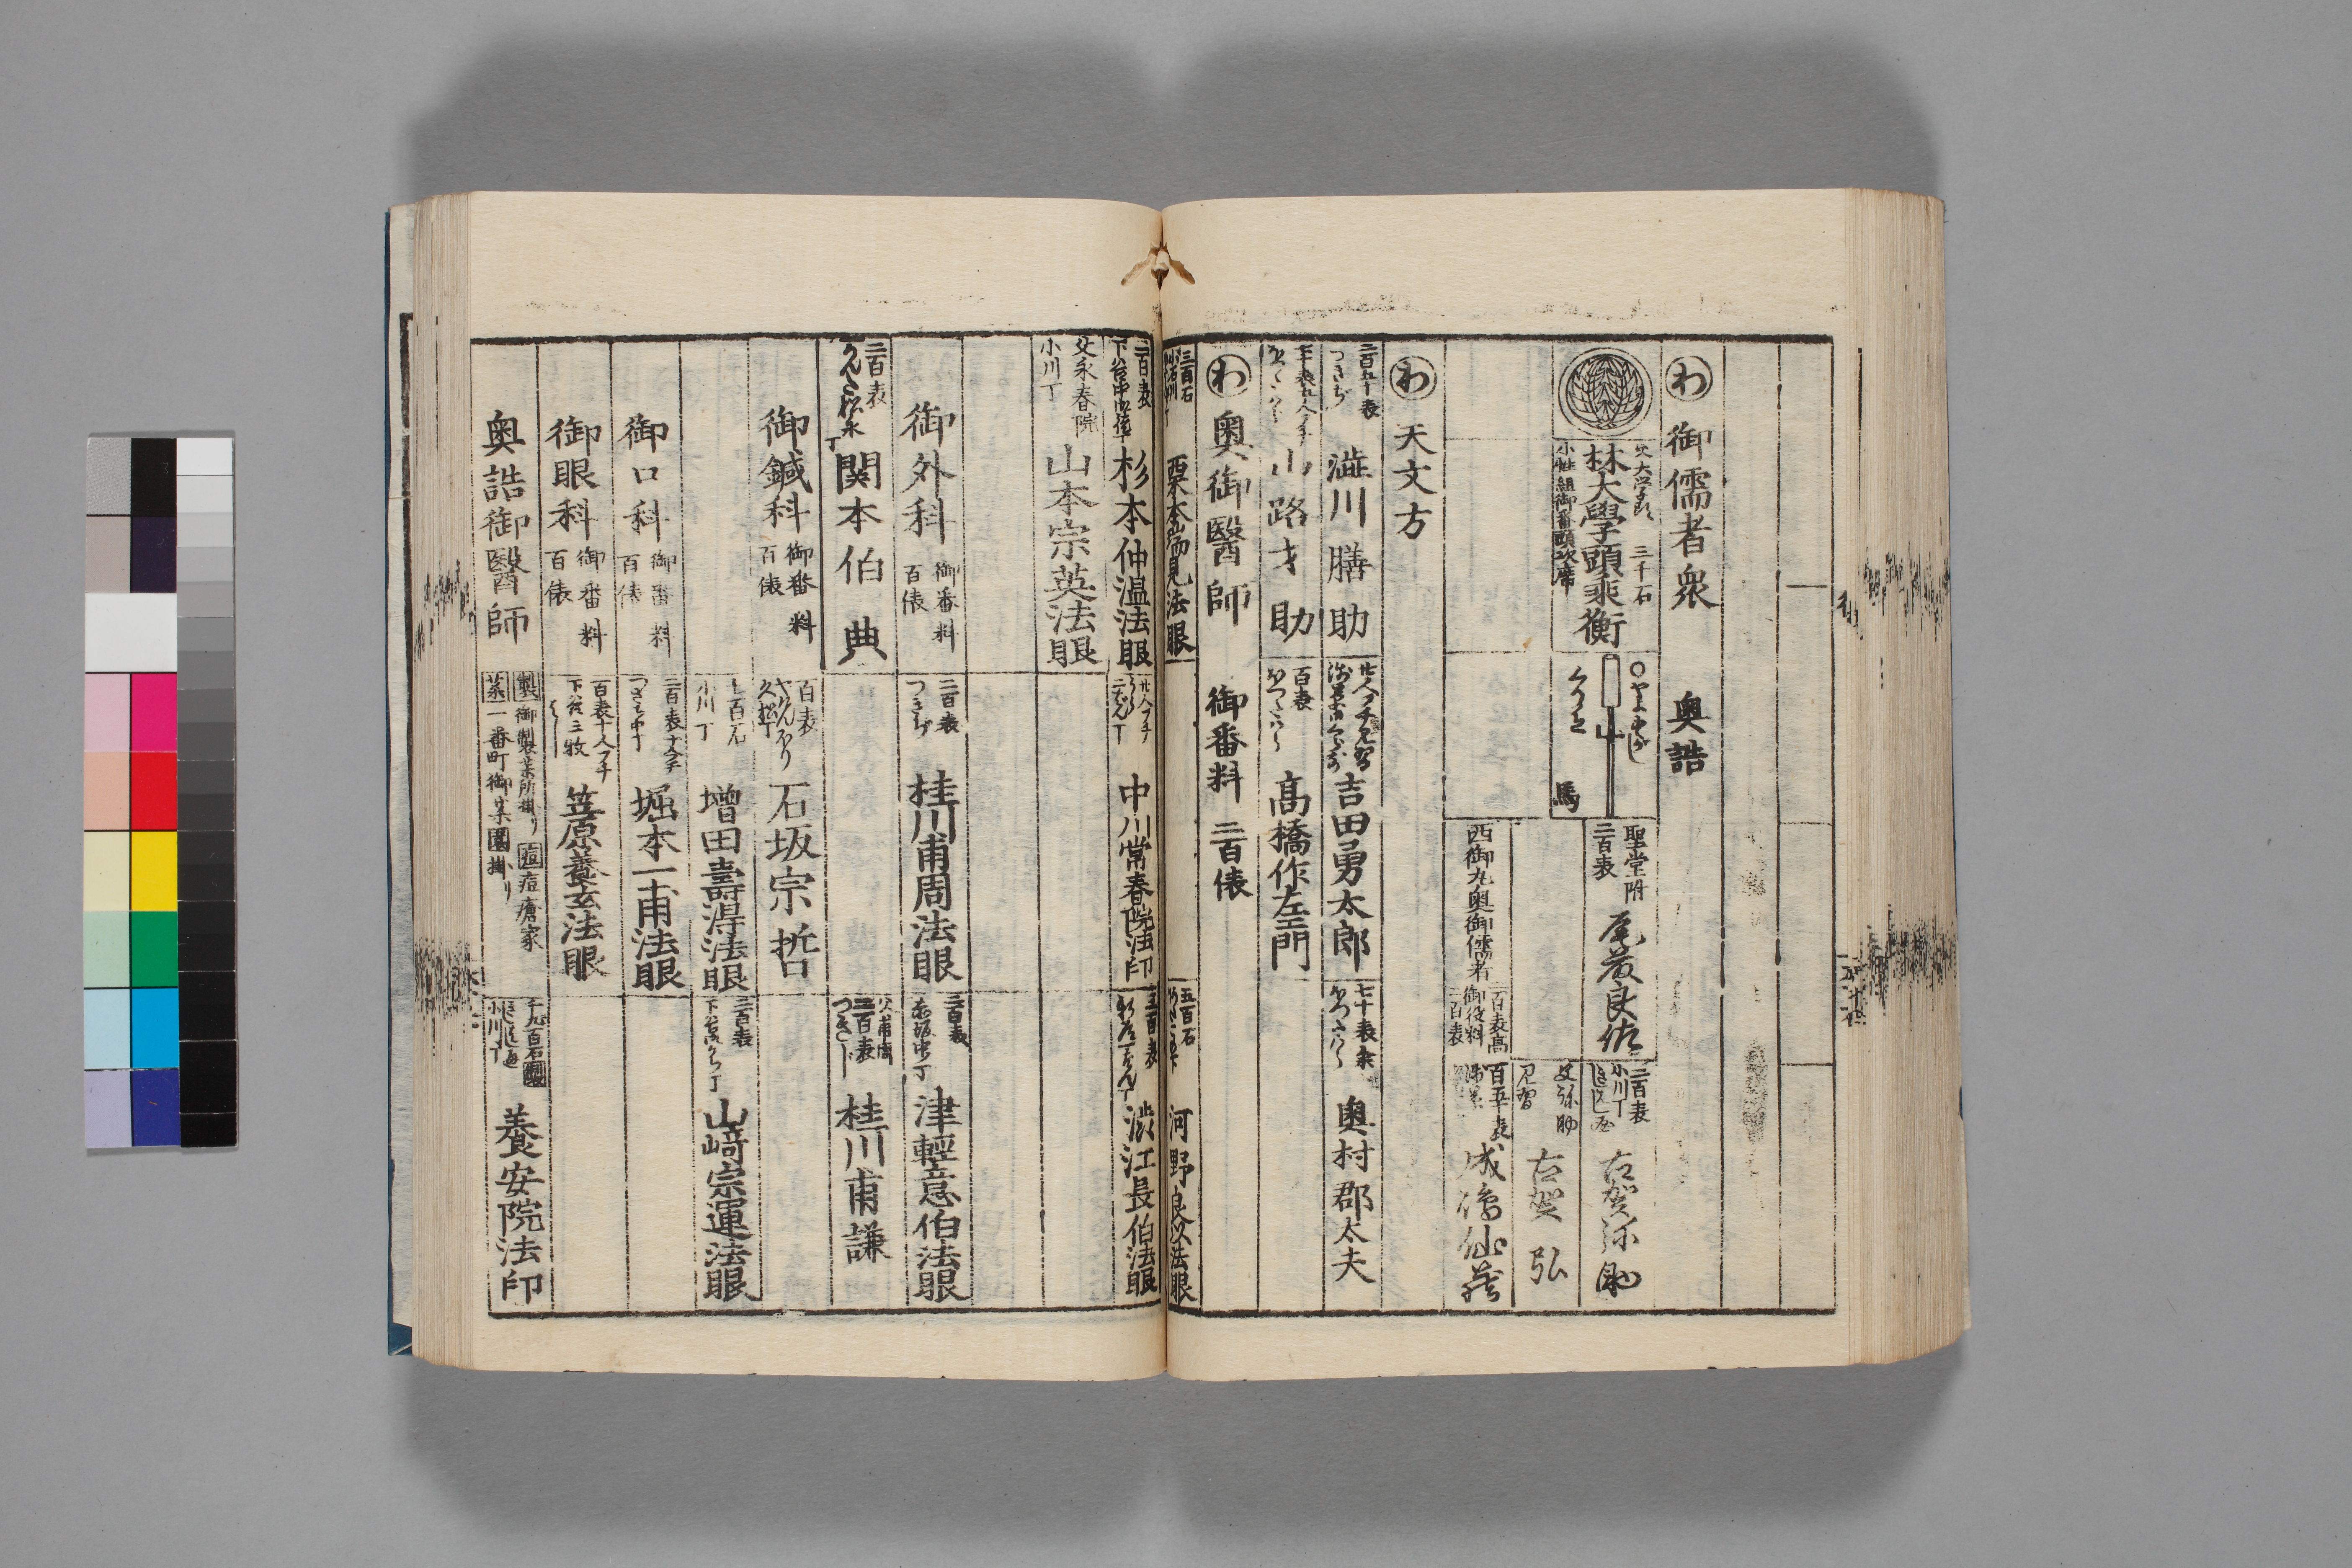 わ 御儒者衆 奥詰
父大学頭 三千石
林大學頭乘衡
小性組御番頭次席
馬
聖堂附
二百表
尾藤良佐
二百表
小川丁
古賀弥助
父弥助
見習
古賀 弘
西御丸奥御儒者
二百表高
御役料
二百表
百五十表
成嶋仙蔵
わ 天文方
二百五十表
つきぢ
澁川膳助
廿人フチ見習
吉田勇太郎
七十表
奥村郡太夫
山路才助
百表
髙橋作左エ門
わ 奥御醫師 御番料 二百俵
三百石
栗本瑞見法眼
五百石
河野良以法眼
二百表
杉本仲温法眼
廿人フチ
中川常春院法印
三百表
澁江長伯法眼
父永春院
小川丁
山本宗英法眼
御外科
御番料
百俵
二百表
つきぢ
桂川甫周法眼
二百表
津輕意伯法眼
二百表
関本伯典
父甫周
二百表
桂川甫謙
御鍼科
御番料
百俵
百表
久松丁
石坂宗哲
七百石
小川丁
増田壽得法眼
二百表
山﨑宗運法眼
御口科
御番料
百俵
堀本一甫法眼
御眼科
御番料
百俵
百表十人フチ
笠原養玄法眼
奥詰御醫師
製 御製薬所掛り 痘 痘瘡家
薬 一番町御薬園掛り
千九百石 製
小川丁
養安院法印